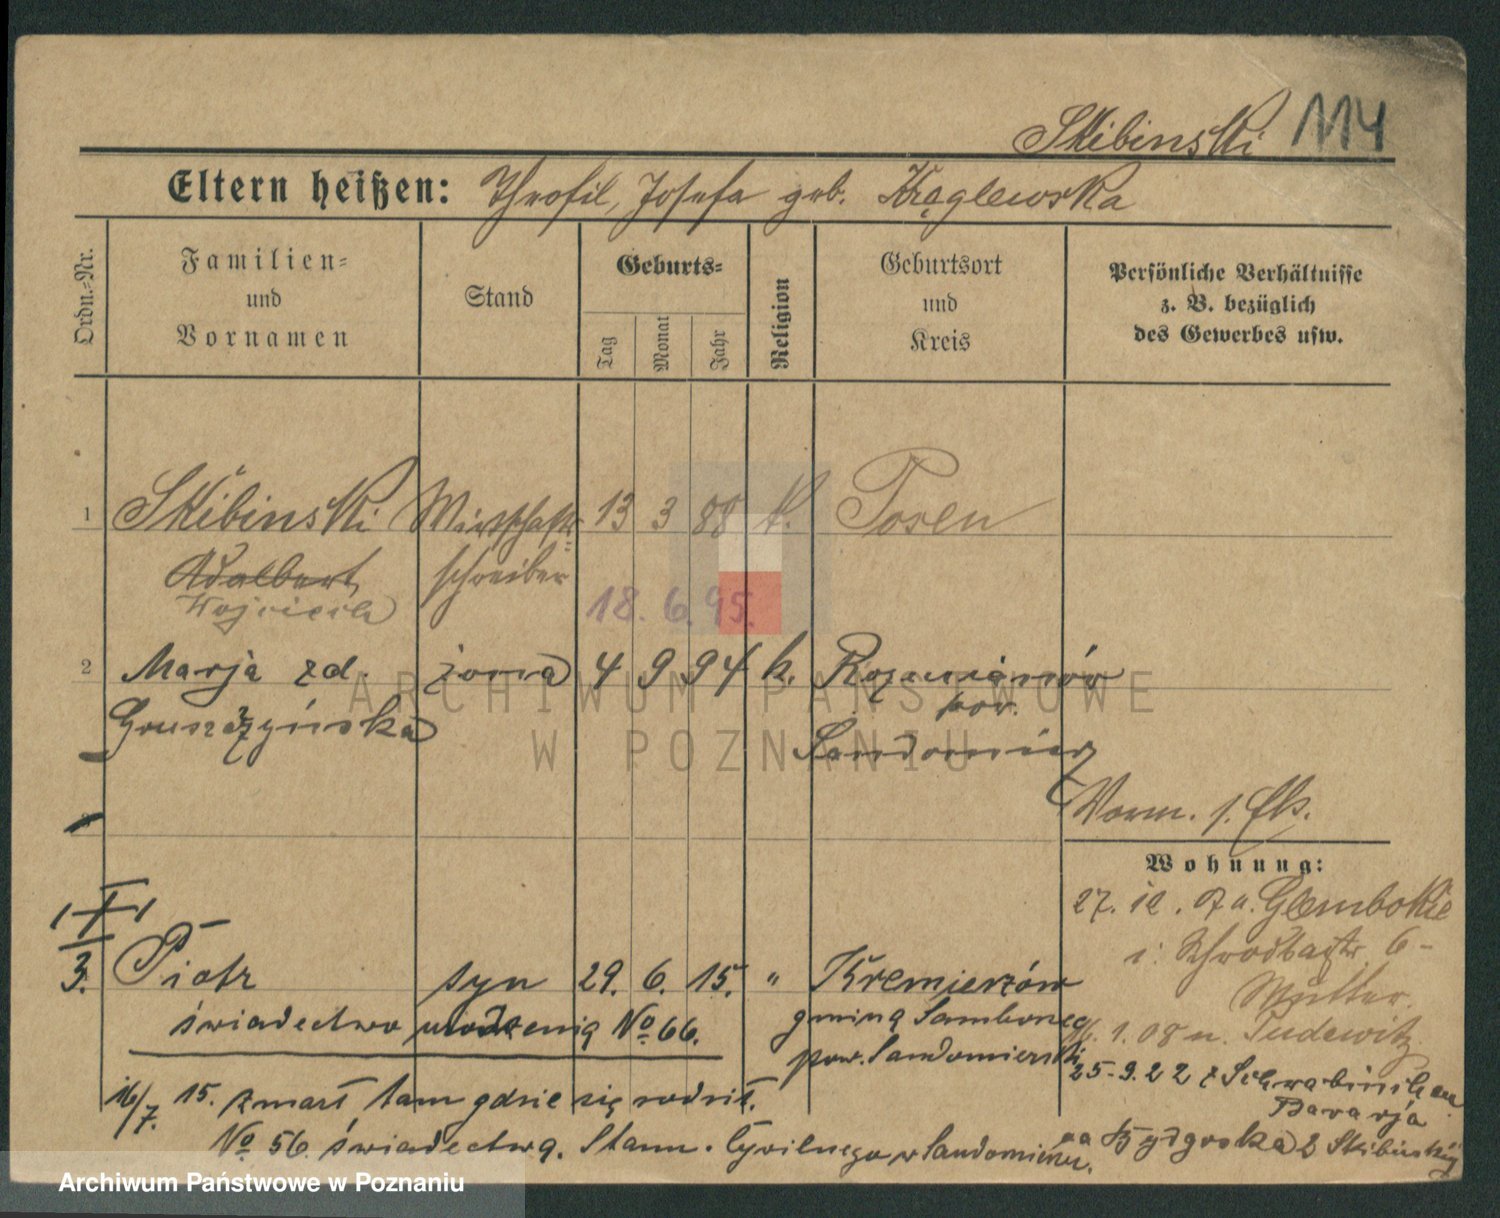 Skibinski 114
Eltern heißen: Theofil, Josefa geb. Krąglewska
Ordn.-Nr.
Familien- und Vornamen
Stand
Geburts-
Tag
Monat
Jahr
Religion
Geburtsort und Kreis
Persönliche Verhältnisse
z. B. bezüglich
des Gewerbes usw.
1 Skibinski Wirtschafts- 13 3 88 k. Posen
Adalbert schreiber
Wojciech 18. 6. 95.
2 Marja zd. żona 4 9 94 k. Rozmianów
Gruszczyńska pow.
Sandomierz
Vorm. 1.
3
Wohnung:
27. 12. 07 n. Glembokie
i. Schrodtagstr. 6-
Müller.
3. Piotr syn 29. 6. 15. " Kremierzów
świadectwo urodzenia No 66. gmina Samborzec
16. 1. 08 n. Pudewitz
pow. Sandomierski
25-9.22 z
Bavarja
16/7. 15. zmarł tam gdzie się rodził.
No 56. świadectwa. Stanu. Cywilnego w Sandomierzu.
na Bydgoska 2 Skibinskij
ARCHIWUM PAŃSTWOWE
W POZNANIU
Archiwum Państwowe w Poznaniu